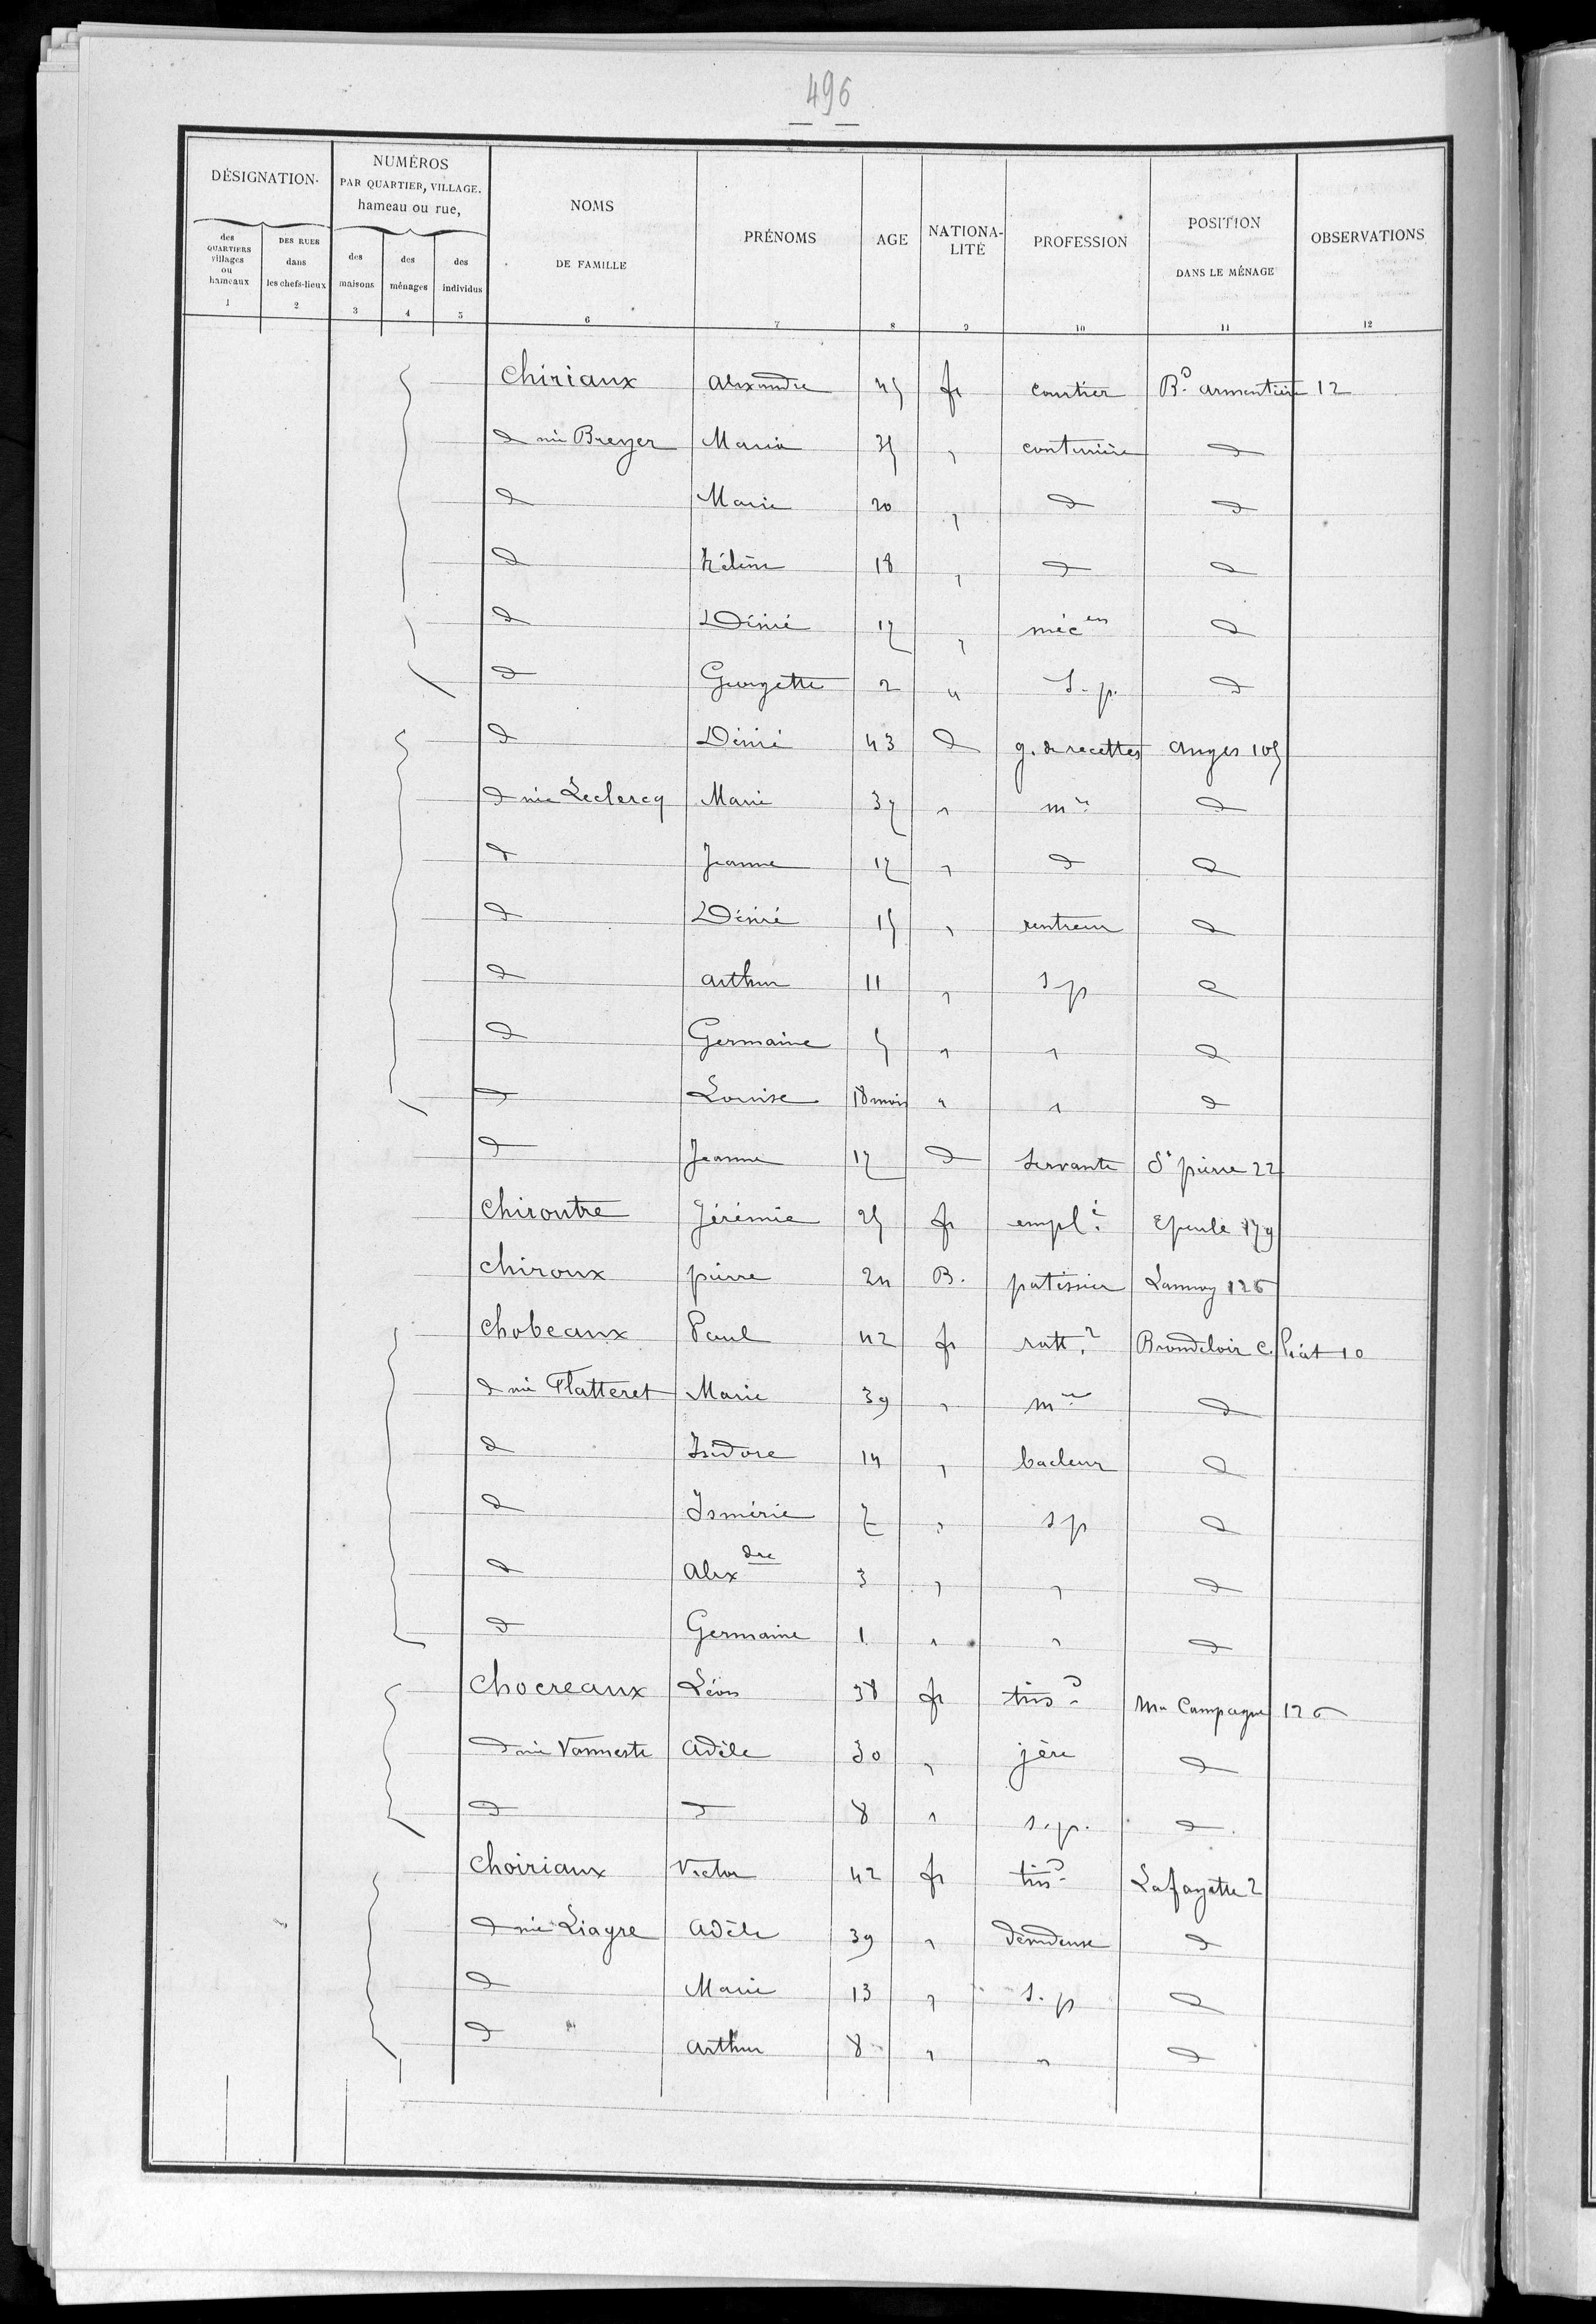 496
DÉSIGNATION
NUMÉROS
PAR QUARTIER, VILLAGE.
hameau ou rue,
NOMS
DE FAMILLE
PRÉNOMS
AGE
NATIONA-
LITÉ
PROFESSION
POSITION
DANS LE MÉNAGE
OBSERVATIONS
des
QUARTIERS
villages
ou
hameaux
DES RUES
dans
les chefs-lieux
des
maisons
des
ménages
des
individus
1 2 3 4 5 6 7 8 9 10 11 12
Chiriaux Alexandre 45 fr courtier Bd Armentière 12
d née Breyer Maria 35 " couturière d
d Marie 20 " d d
d Hélène 18 " d d
d Désiré 17 " mécen d
d Georgette 2 " S. p. d
d Désiré 43 d g. de recettes Anges 105
d née Leclercq Marie 37 " mre d
d Jeanne 17 " d d
d Désiré 15 " rentreur d
d Arthur 11 " s p d
d Germaine 5 " " d
d Louise 18 mois " " d
d Jeanne 17 d Servante St pierre 22
Chiroutre Jérémie 25 fr emplé Epeule 179
Chiroux pierre 24 B. patissier Lannoy 126
Chobeaux Paul 42 fr ratt.r Brondeloir c. Liât 10
d née Flatteret Marie 39 " mre d
d Isidore 14 " bacleur d
d Isménie 7 " s p d
d Alexdre 3 " " d
d Germaine 1 " " d
Chocreaux Léon 38 fr tisd Mn Campagne 126
d née Vanneste Adèle 30 " jère d
d d 8 " s. p. d
Choiriaux Victor 42 fr tisd Lafayette 2
d née Liagre Adèle 39 " dévideuse d
d Marie 13 " s. p d
d Arthur 8 " " d